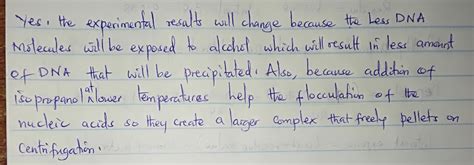 Yes, the experimental results will change because the Less DNA
Molecules will be exposed to alcohol which will result in less amount
of DNA that will be precipitated. Also, because addition of
isopropanol at lower temperatures help the flocculation of the
nucleic acids so they create a larger complex that freely pellets on
Centrifugation.